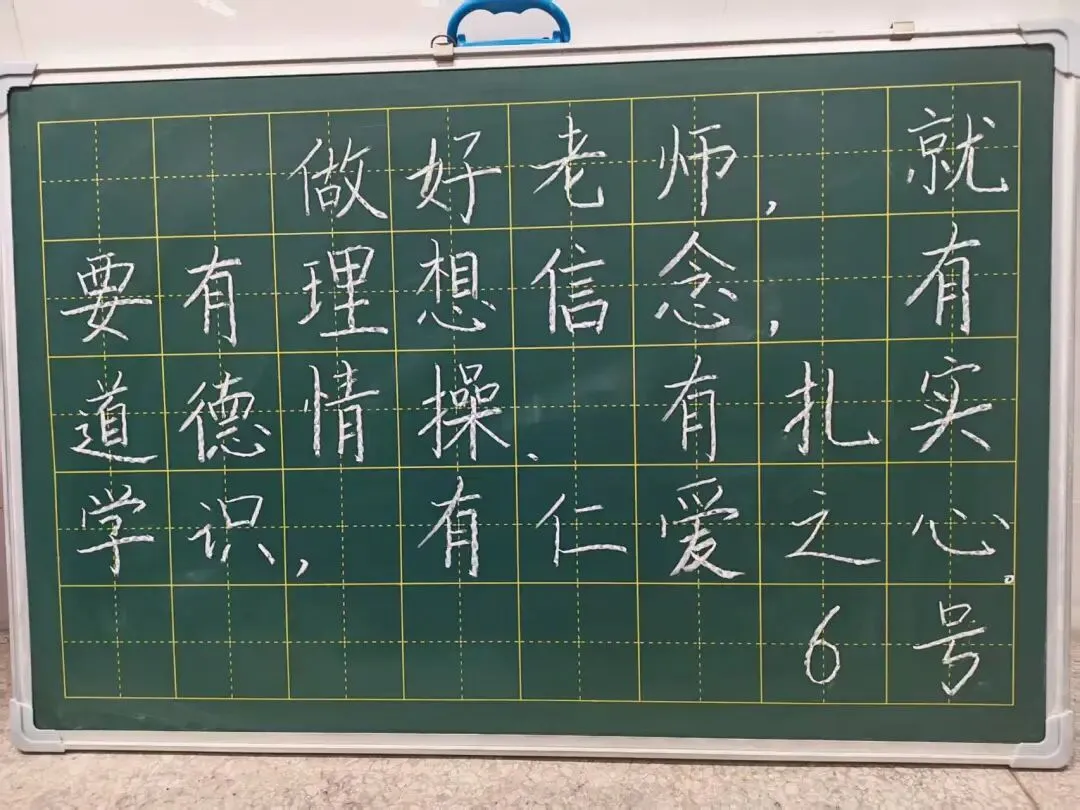 做好老师，就
要有理想信念，有
道德情操、有扎实
学识，有仁爱之心。
6号